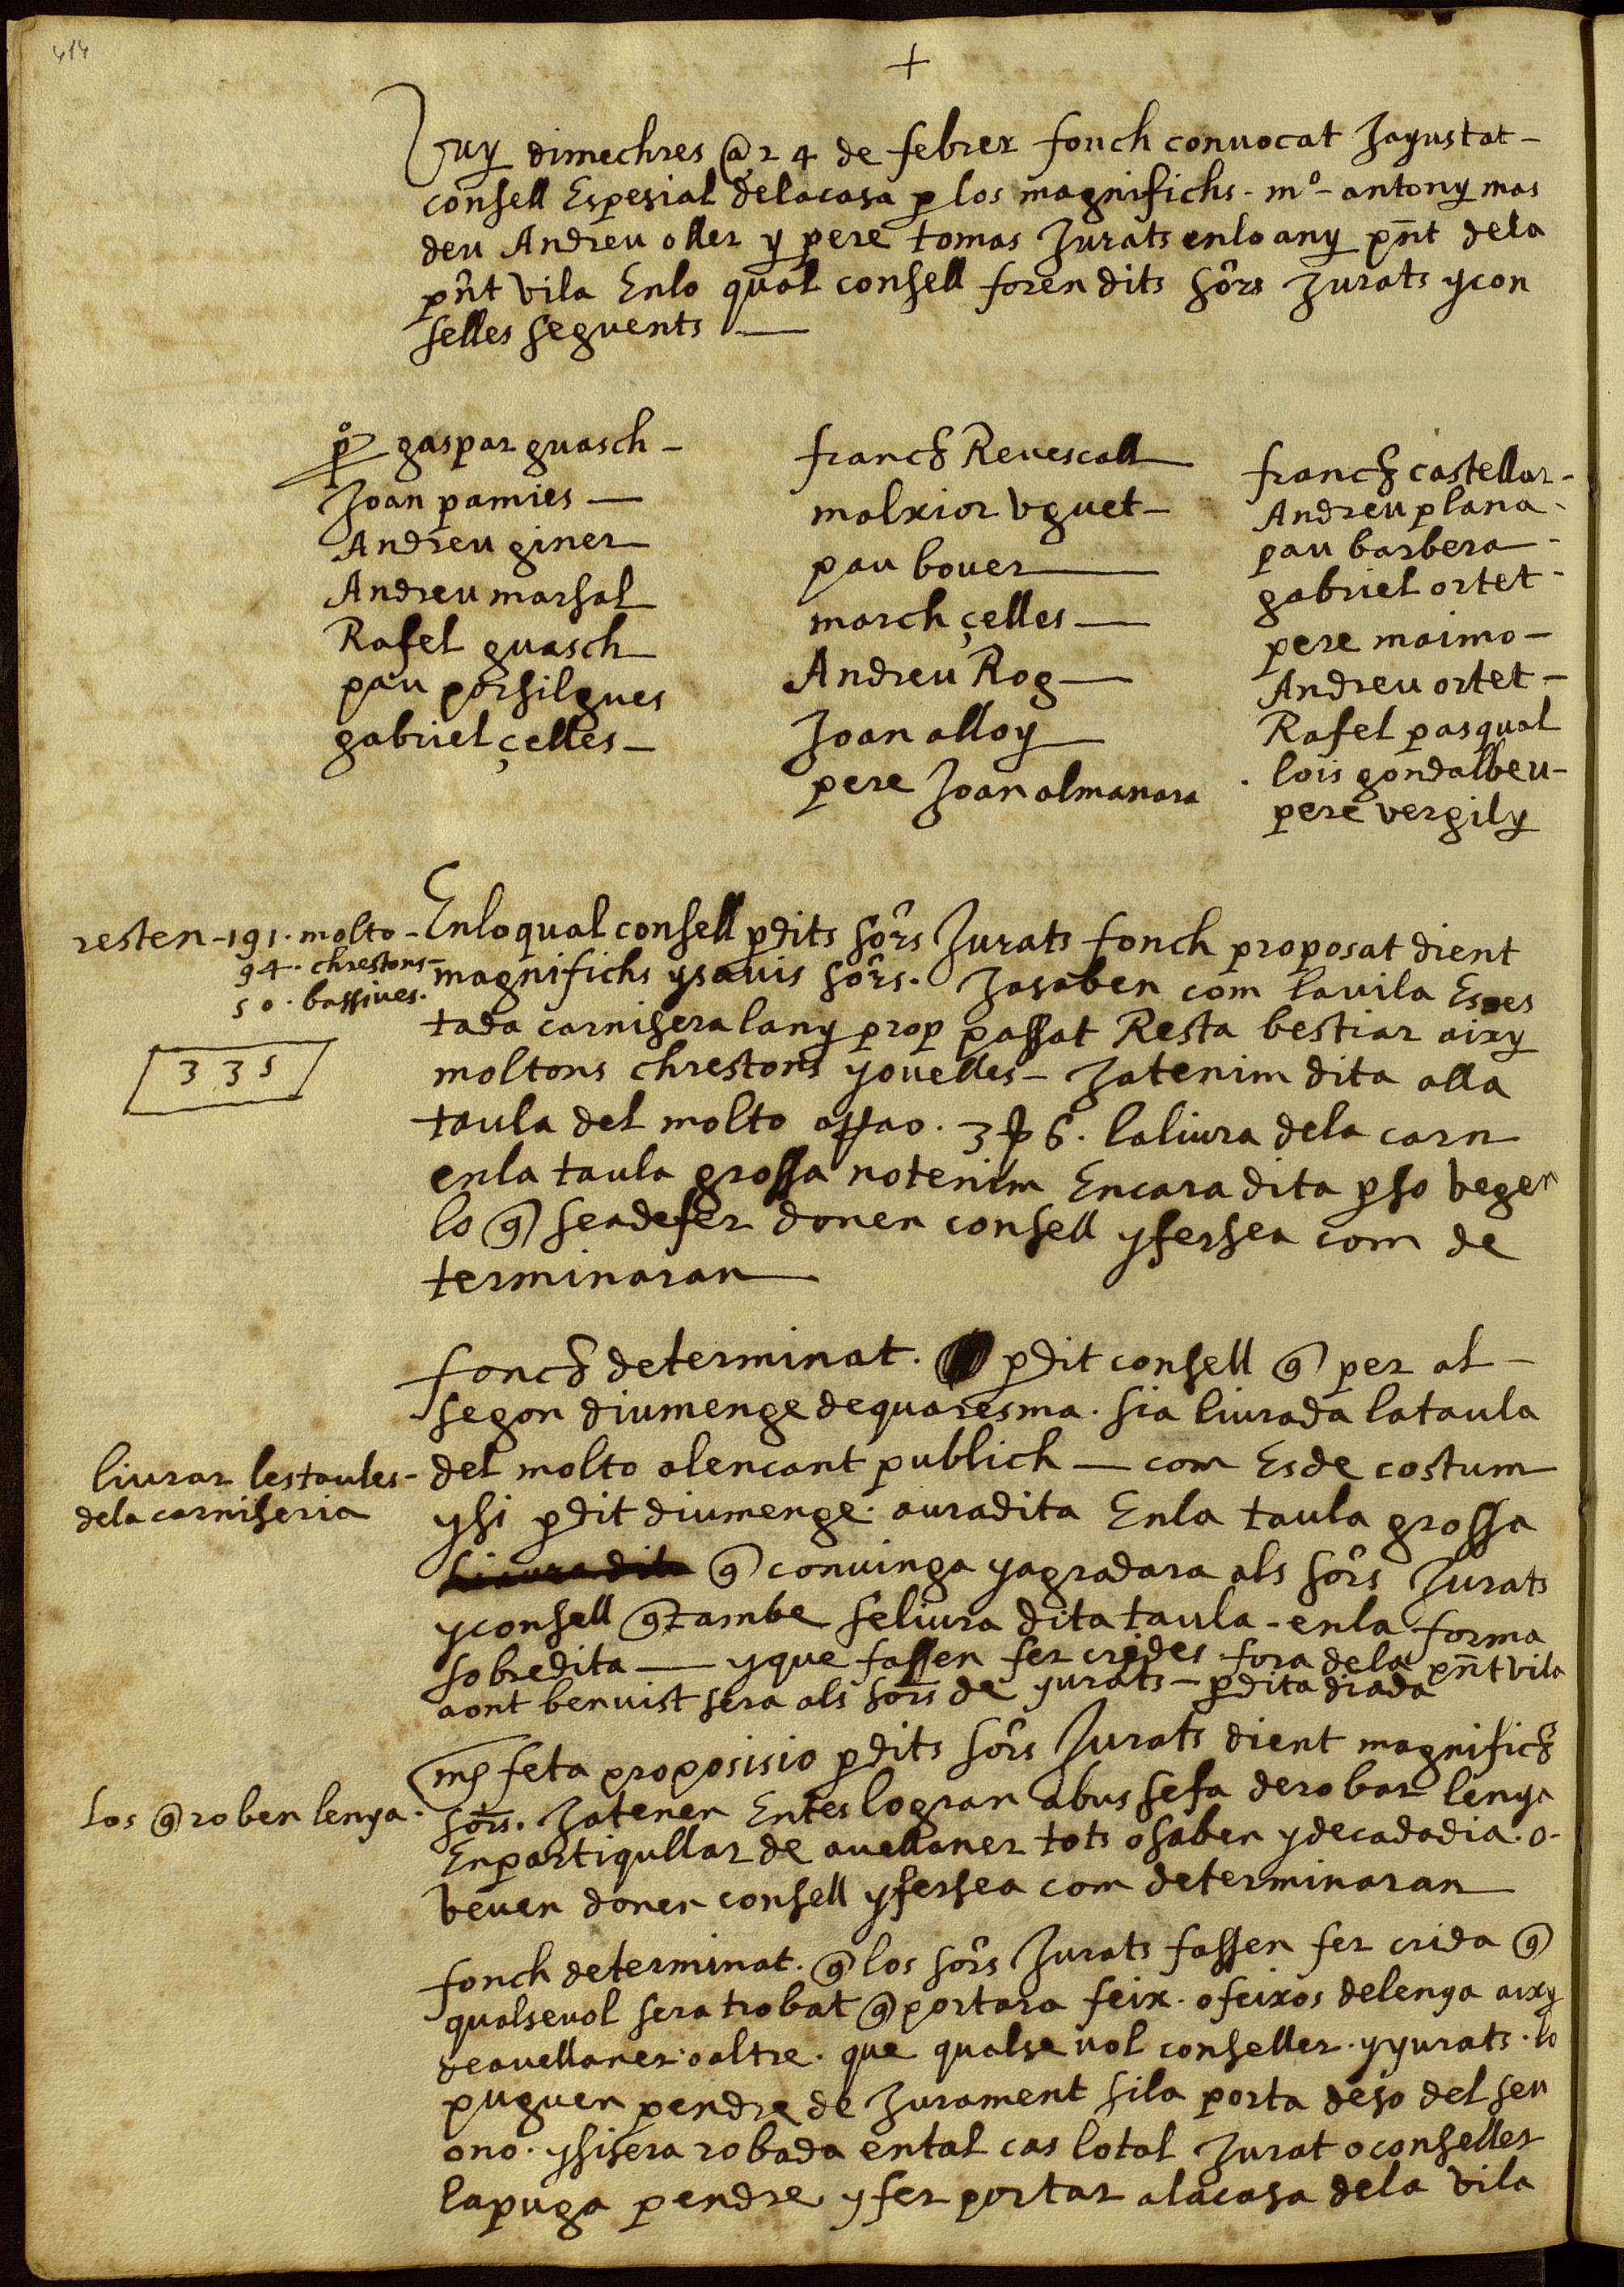 414
+
Vuy dimechres @ 24 de febrer fonch convocat J ayustat
consell Espesial delacasa p los magnifichs mº antony mas
deu Andreu oller y pere tomas Jurats enlo any pñt dela
pñt vila Enlo qual consell foren dits sōrs Jurats ycon
selles seguents
pº gaspar guasch
Joan pamies
Andreu giner
Andreu marsal
Rafel guasch
pau porsilgues
gabriel çelles
franch Revescall
malxior vguet
pau bover
march çelles
Andreu Rog
Joan alloy
pere Joan almanara
franch castellar
Andreu plana
pau barbera
gabriel ortet
pere maimo
Andreu ortet
Rafel pasqual
lois gondalbeu
pere vergily
resten 191. molto
94. chrestons
50. bassives.
335
Enloqual consell pdits sōrs Jurats fonch proposat dient
magnifichs ysavis sōrs. Jasaben com lavila Espes
tada carnisera lany prop passat Resta bestiar aixy
moltons chrestons yovelles Jatenim dita alla
taula del molto assao. 3 ß 6. laliura dela carn
enla taula grossa notenim Encara dita pso vegen
lo q seadefer donen consell yfersea com de
terminaran
fonch determinat. pdit consell q per al
segon diumenge dequaresma. sia liurada lataula
livrar lestaules
dela carniseria
del molto alencant publich com Esde costum
ysi pdit diumenge. auradita Enla taula grossa
siauradita q convinga yagradara als sōrs Jurats
yconsell q tambe seliura dita taula enla forma
sobredita yque fassen fer crides fora dela pñt vila
aont benvist sera als sōrs de yurats pdita diada
mes feta proposisio pdits sōrs Jurats dient magnifichs
los q roben lenya.
sōrs. Jatenen Entes logran abus sefa derobar lenya
Enpartiqullar de avellaner tots osaben ydecadadia. o
veven donen consell yfersea com determinaran
fonch determinat. q los sōrs Jurats fassen fer crida q
qualsevol sera trobat q portara feix. ofeixos delenya aixy
deavellaner oaltre. que qualsevol conseller. yyurats. lo
puguen pendre de Jurament sila porta deso del seu
ono. ysisera robada ental cas lotal Jurat oconseller
lapuga pendre yfer portar alacasa dela vila